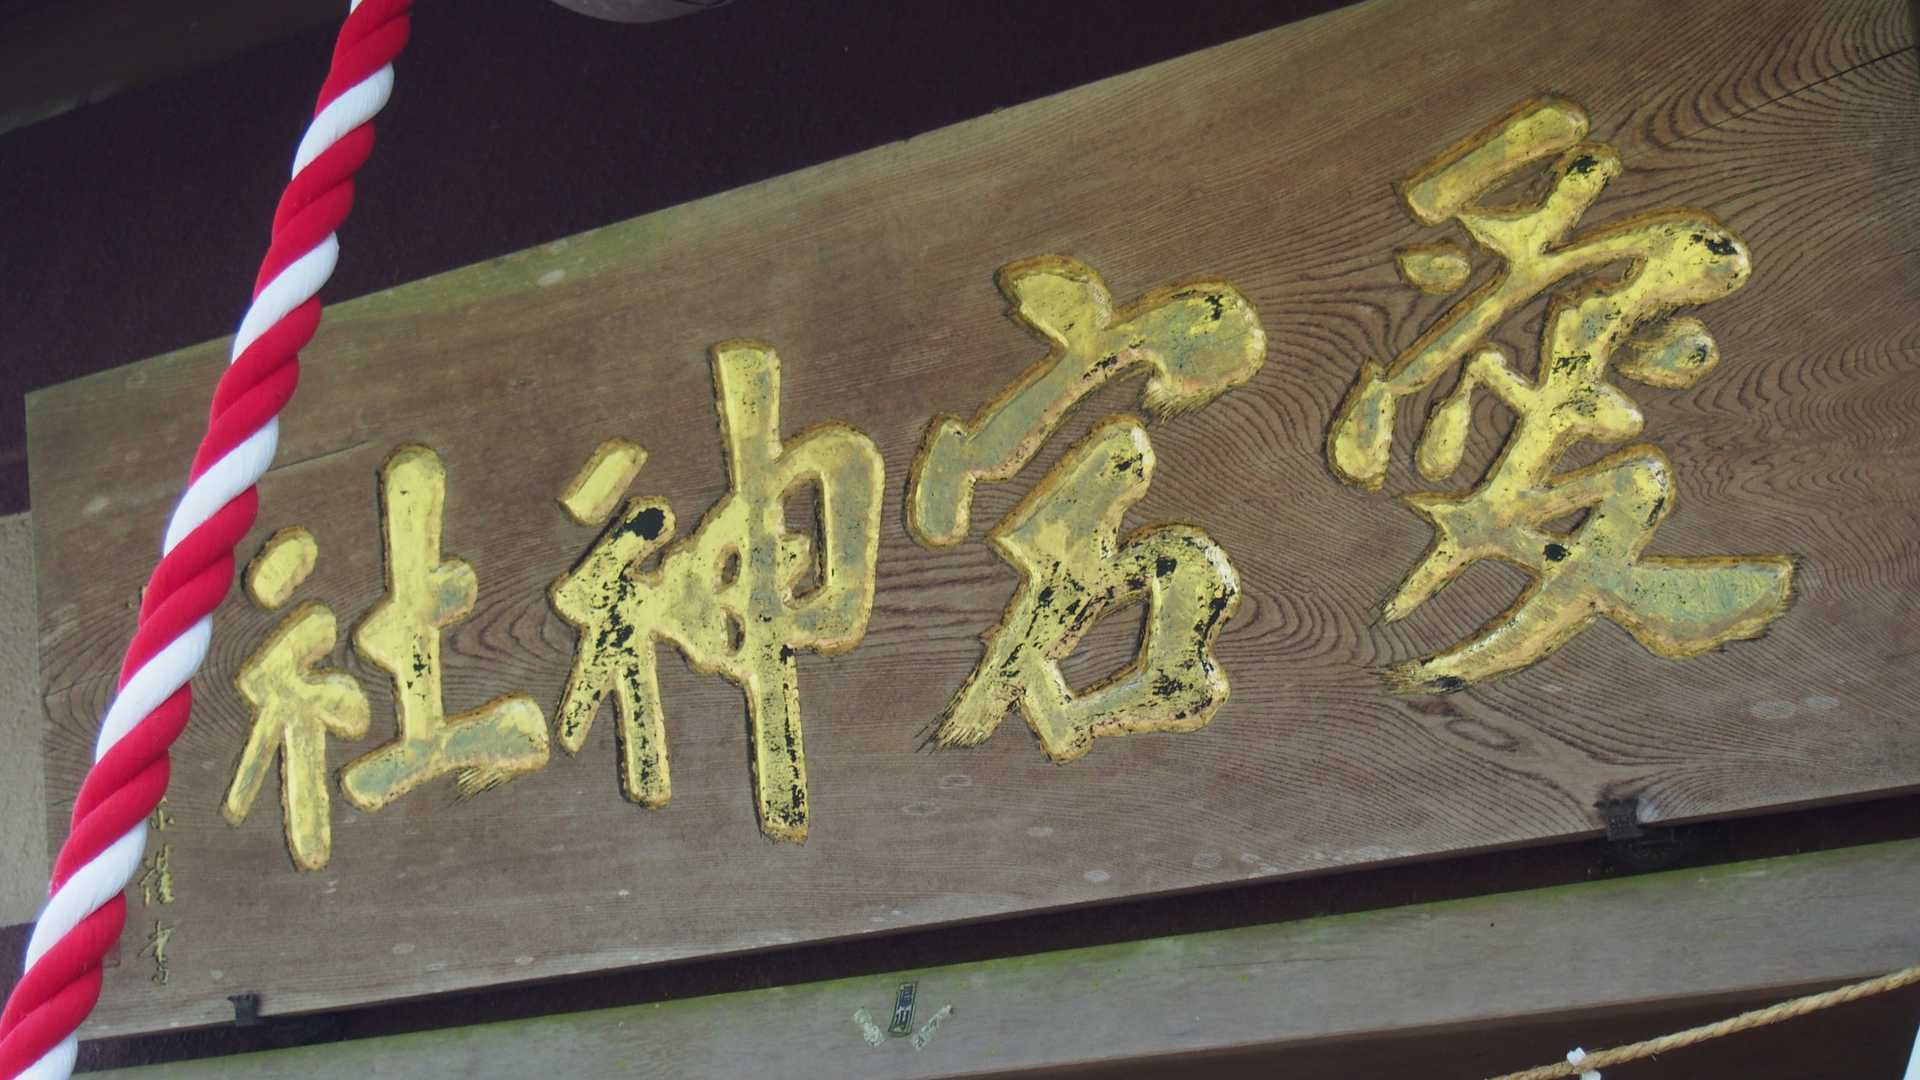 愛宕神社
謹書